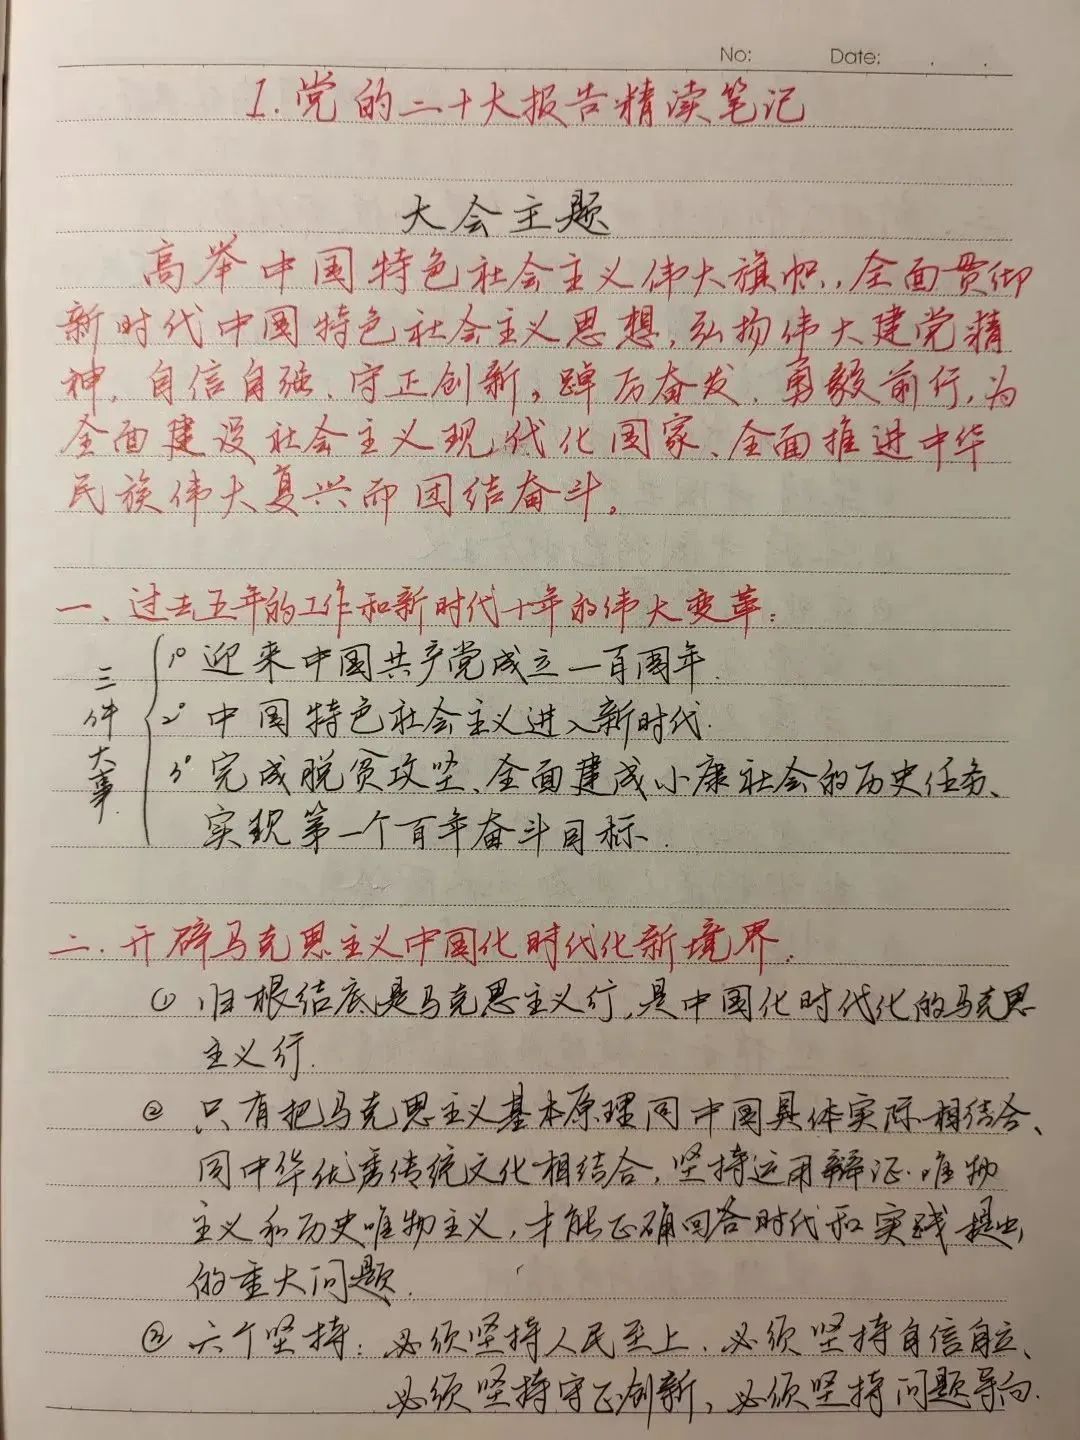 No:  Date:
1.党的二十大报告精读笔记
大会主题
高举中国特色社会主义伟大旗帜,全面贯彻
新时代中国特色社会主义思想,弘扬伟大建党精
神,自信自强、守正创新,踔厉奋发、勇毅前行,为
全面建设社会主义现代化国家、全面推进中华
民族伟大复兴而团结奋斗。
一、过去五年的工作和新时代十年的伟大变革:
三件大事
1° 迎来中国共产党成立一百周年.
2° 中国特色社会主义进入新时代.
3° 完成脱贫攻坚、全面建成小康社会的历史任务、
实现第一个百年奋斗目标.
二.开辟马克思主义中国化时代化新境界.
① 归根结底是马克思主义行,是中国化时代化的马克思
主义行.
② 只有把马克思主义基本原理同中国具体实际相结合、
同中华优秀传统文化相结合,坚持运用辩证唯物
主义和历史唯物主义,才能正确回答时代和实践提出
的重大问题.
③ 六个坚持:必须坚持人民至上、必须坚持自信自立、
必须坚持守正创新、必须坚持问题导向.